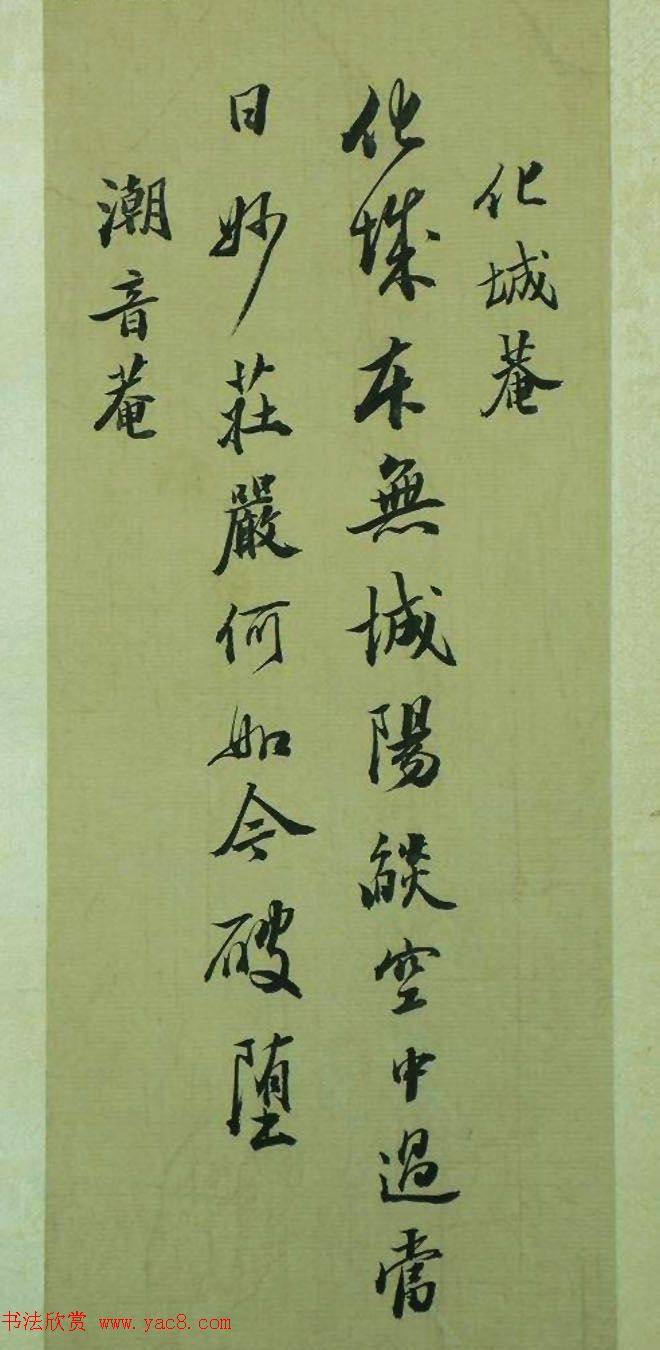 化城菴
化城本無城陽燄空中過當
日妙莊嚴何如今破堕
潮音菴
书法欣赏 www.yac8.com